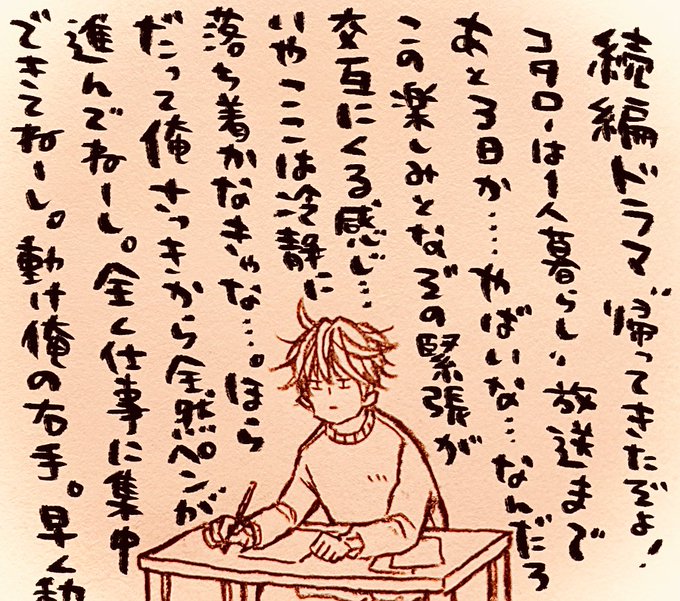 続編ドラマ"帰ってきたぞよ!
コタローは1人暮らし"放送まで
あと3日か……やばいな…なんだろ
この楽しみとなぞの緊張が
交互にくる感じ…
いやここは冷静に
落ち着かなきゃな…。ほら
だって俺さっきから全然ペンが
進んでねーし。全く仕事に集中
できてねーし。動け俺の右手。早く動